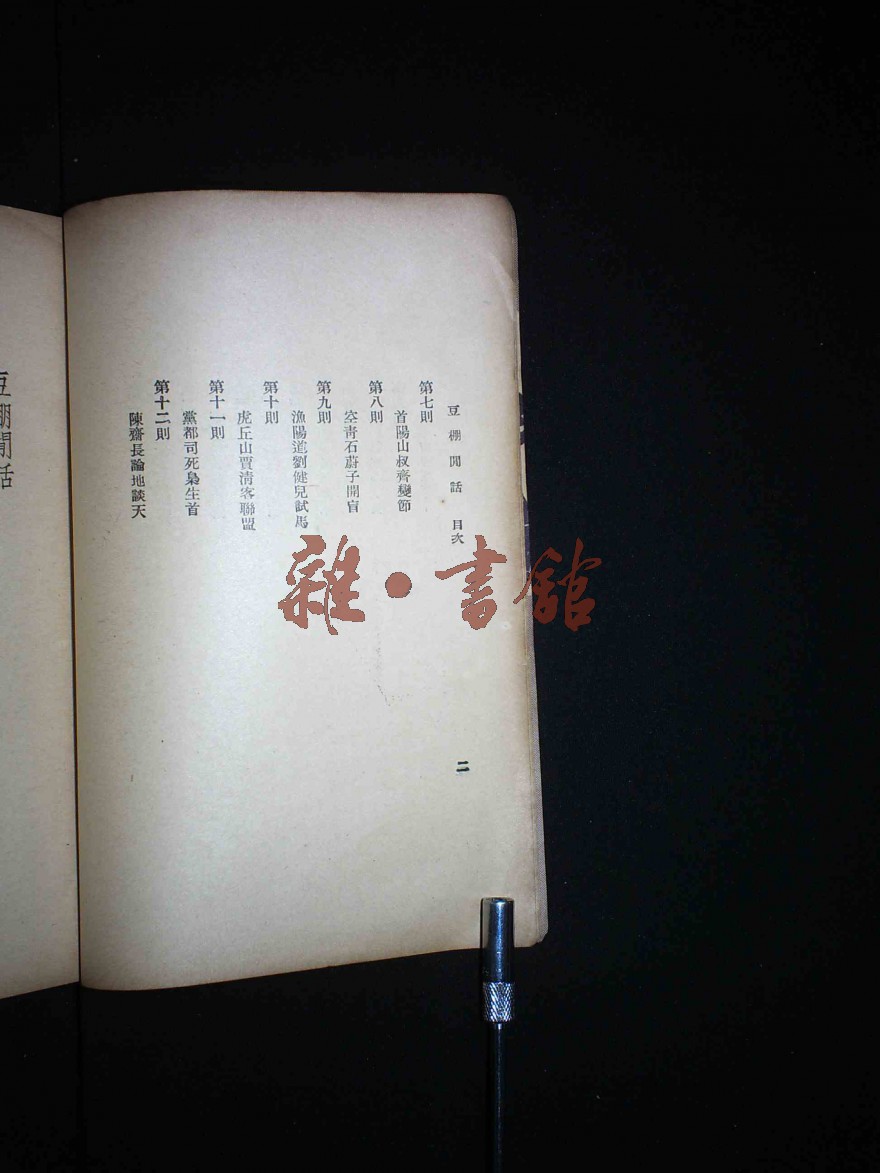 豆棚閒話　目次
第七則
首陽山叔齊變節
第八則
空青石蔚子開盲
第九則
漁陽道劉健兒試馬
第十則
虎丘山賈清客聯盟
第十一則
黨都司死梟生首
第十二則
陳齋長論地談天
二
豆棚閒話
雜·書館